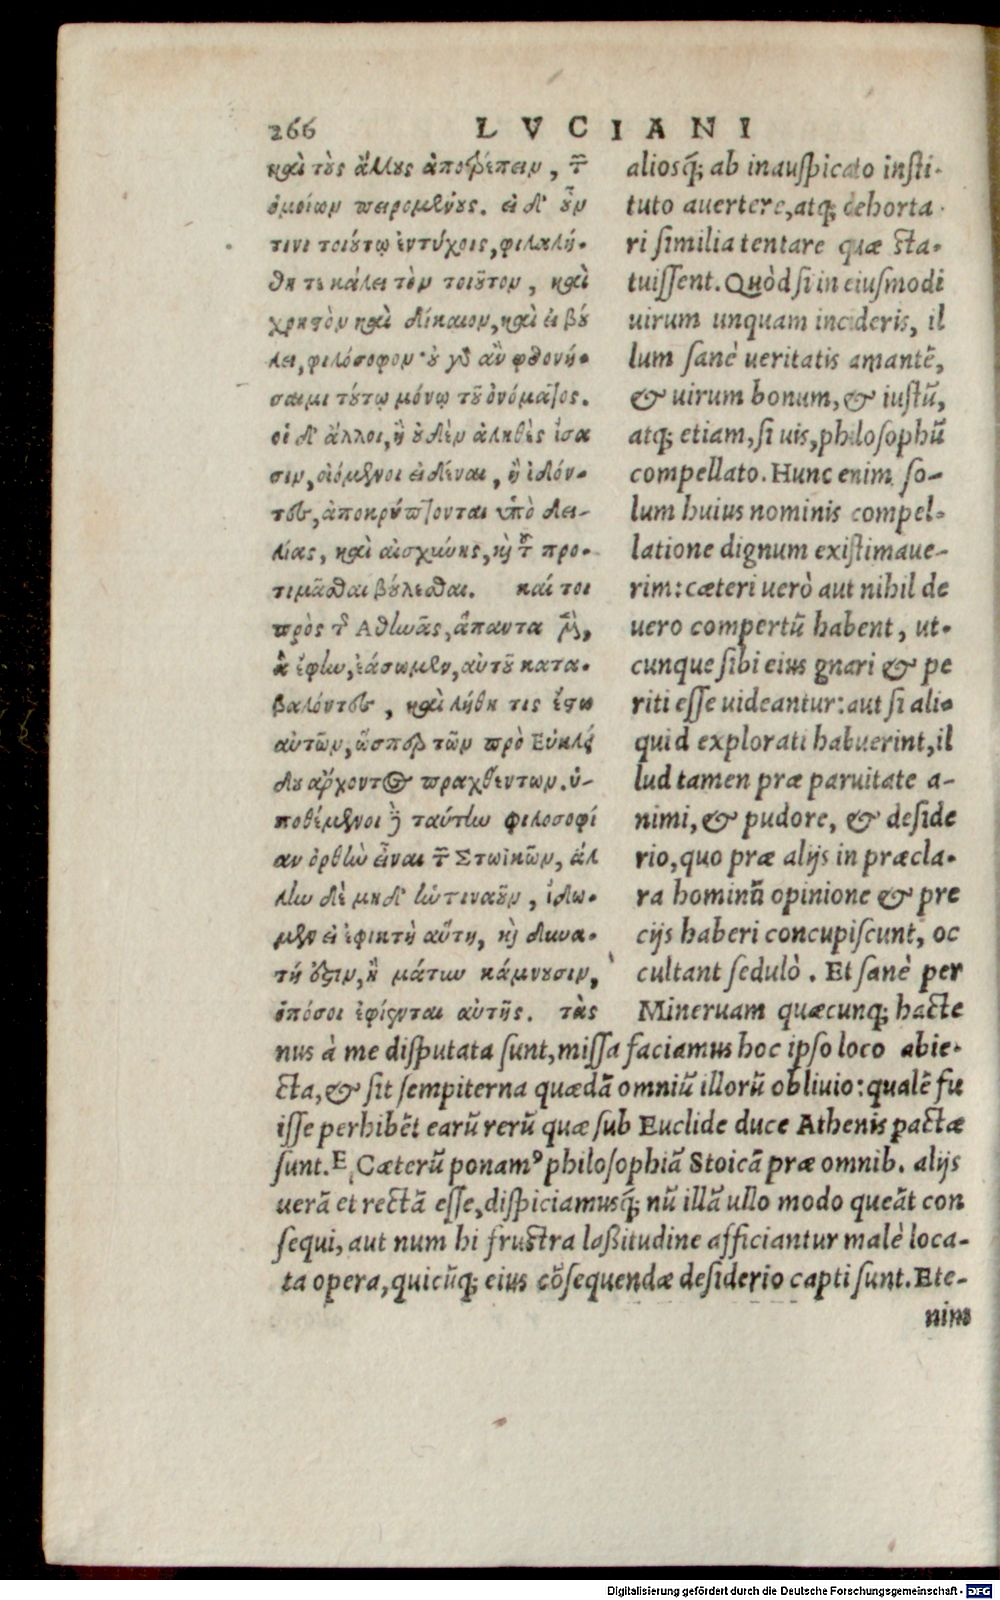 266 LVCIANI
καὶ τοὺς ἄλλους ἀποτρέπειν, τῶν
ὁμοίων πειρομένους. εἰ δ' οὖν
τινι τοιούτῳ ἐντύχοις, φιλαλή-
θη τε κάλει τὸν τοιοῦτον, καὶ
χρηστὸν καὶ δίκαιον, καὶ εἰ βού
λει, φιλόσοφον· οὐ γὰρ ἂν φθονή-
σαιμι τούτῳ μόνῳ τοῦ ὀνόματος.
οἱ δ' ἄλλοι, ἢ οὐδὲν ἀληθὲς ἴσα
σιν, οἰόμενοι εἰδέναι, ἢ εἰδόν-
τες, ἀποκρύπτονται ὑπὸ δει-
λίας, καὶ αἰσχύνης, καὶ τοῦ προ-
τιμᾶσθαι βούλεσθαι. καί τοι
πρὸς τῆς Ἀθηνᾶς, ἅπαντα μὲν,
ἃ ἔφην, ἐάσωμεν, αὐτοῦ κατα-
βαλόντες, καὶ λήθη τις ἔστω
αὐτῶν, ὥσπερ τῶν πρὸ Εὐκλεί
δου ἄρχοντος πραχθέντων. ὑ-
ποθέμενοι δὲ ταύτην φιλοσοφί
αν ὀρθὴν εἶναι τὴν Στωϊκῶν, ἄλ
λην δὲ μηδ' ἡντιναοῦν, ἴδω-
μεν εἰ ἐφικτὴ αὕτη, καὶ δυνα-
τή ἐστιν, ἢ μάτην κάμνουσιν,
ὁπόσοι ἐφίενται αὐτῆς. τὰς
aliosq́; ab inauspicato insti-
tuto auertere, atq; dehorta-
ri similia tentare quæ sta-
tuissent. Quòd si in eiusmodi
uirum unquam incideris, il
lum sanè ueritatis amantē,
& uirum bonum, & iustū,
atq; etiam, si uis, philosophū
compellato. Hunc enim so-
lum huius nominis compel-
latione dignum existimaue-
rim: cæteri uerò aut nihil de
uero compertū habent, ut-
cunque sibi eius gnari & pe
riti esse uideantur: aut si ali-
quid explorati habuerint, il
lud tamen præ paruitate a-
nimi, & pudore, & deside
rio, quo præ alijs in præcla-
ra hominū opinione & pre
cijs haberi concupiscunt, oc
cultant sedulò. Et sanè per
Mineruam quæcunq; hacte
nus à me disputata sunt, missa faciamus hoc ipso loco abie-
cta, & sit sempiterna quædā omniū illorū obliuio: qualē fu
isse perhibēt earū rerū quæ sub Euclide duce Athenis pactæ
sunt. E Cæterū ponamꝰ philosophiā Stoicā præ omnib. alijs
uerā et rectā esse, dispiciamusq́; nū illā ullo modo queāt con
sequi, aut num hi frustra laßitudine afficiantur malè loca-
ta opera, quicūq; eius cōsequendæ desiderio capti sunt. Ete-
nim
Digitalisierung gefördert durch die Deutsche Forschungsgemeinschaft - DFG